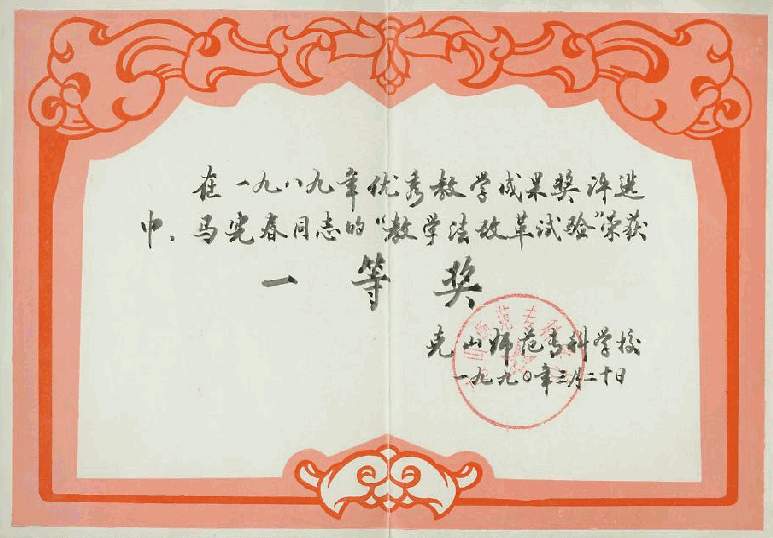 在一九八九年优秀教学成果奖评选
中、马宪春同志的“教学法改革试验”荣获
一等奖
克山师范专科学校
一九九〇年三月二十日